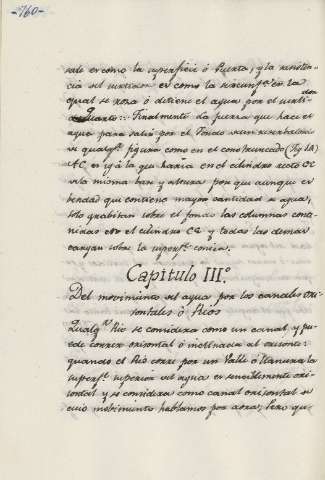 -760-
sale es como la superficie ó Puerta; y la resisten-
cia del vertice es como la circunfª en la
qual se roza ó detiene el agua por el verti-
Finalmente la fuerza que hace el
agua para salir por el fondo de un reserbatorio
de qualqª figura como en el construncado (Fig 1A)
AC es igˡ à la que haria en el cilindro recto CE
de la misma base y altura por que aunque es
berdad que contiene mayor cantidad de agua;
solo grabitan sobre el fondo las columnas conte-
nidas en el cilindro CE y todas las demas
cargan sobre la superfª conica.
Capitulo III.º
Del movimiento del agua por los canales ori-
sontales ó Rios
Qualqª Rio se considera como un canal, y pu-
ede correr orisontal ó inclinado al orisonte:
quando el Rio corre por un Valle ó llanura la
superfª superior del agua es sencillmente ori-
sontal y se considera como canal orisontal de
cuio mobimiento hablamos por aora; Pero qu-